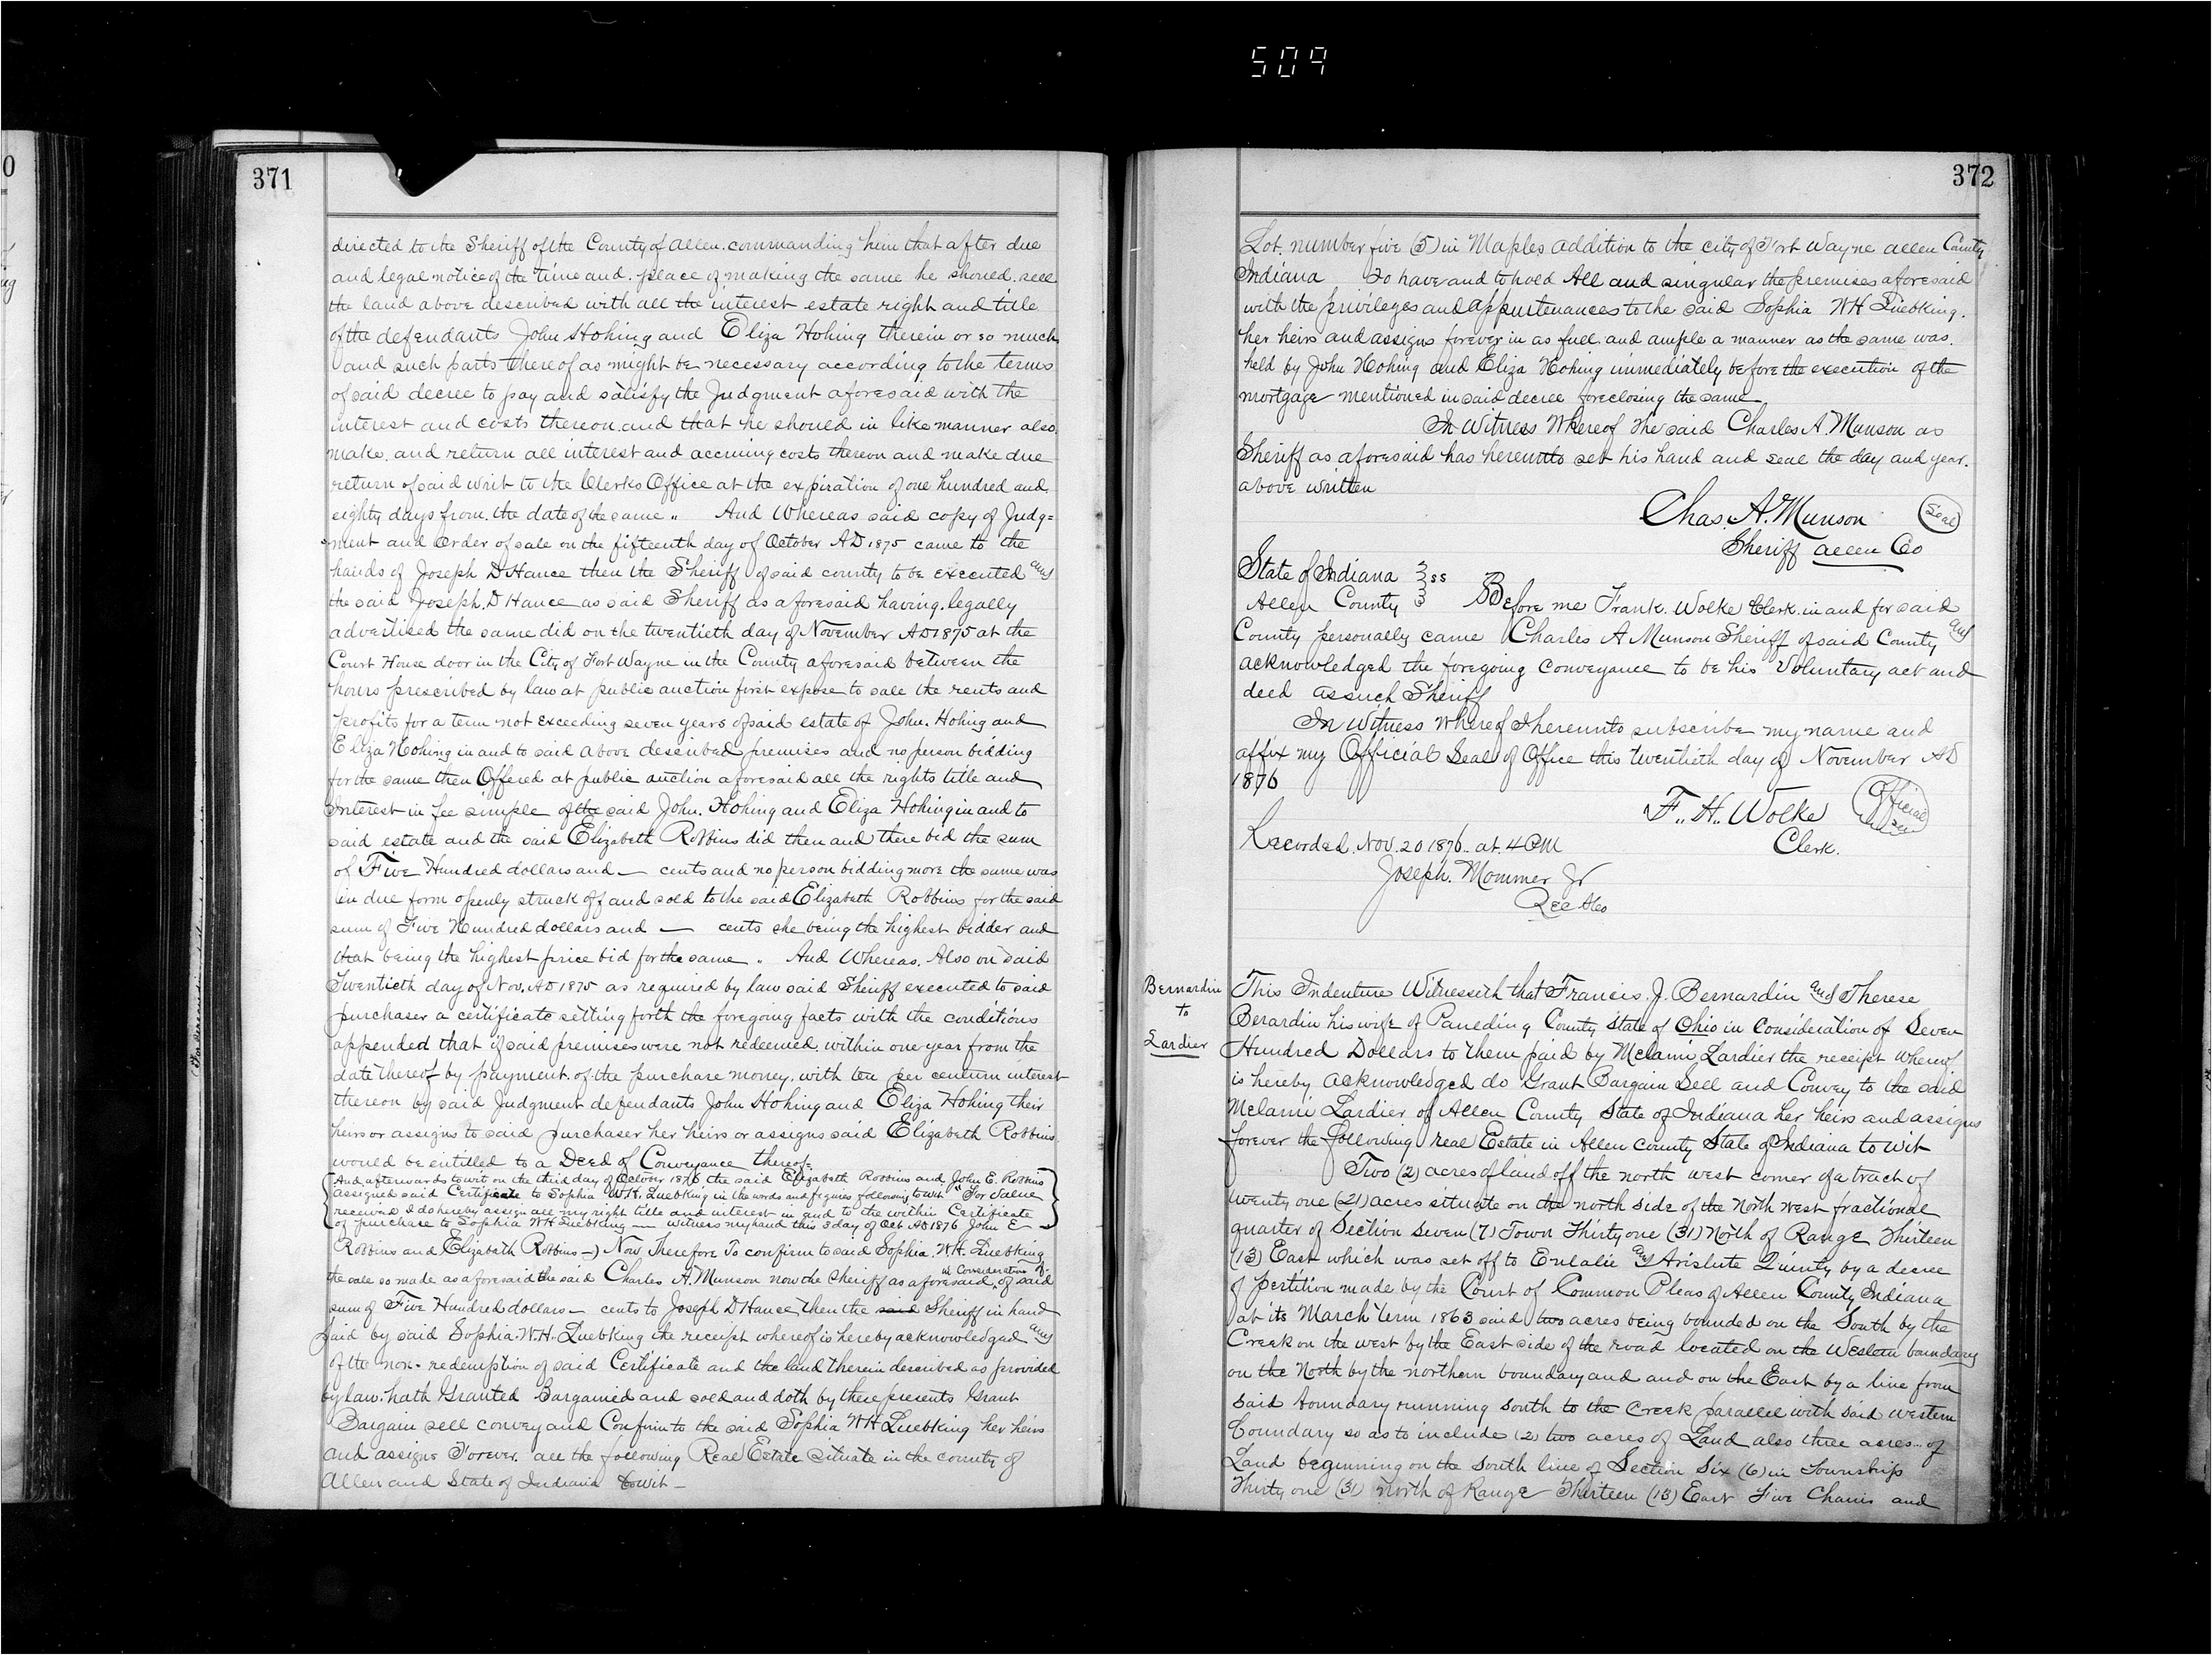 509
371
directed to the Sheriff of the County of Allen. commanding him that after due
and legal notice of the time and. place of making the same he should. sell
the land above described with all the interest estate right and title
of the defendants John Hohing and Eliza Hohing therein or so much
and such parts thereof as might be necessary according to the terms
of said decree to pay and satisfy the Judgment aforesaid with the
interest and costs thereon. and that he should in like manner also.
make. and return all interest and accruing costs thereon and make due
return of said writ to the Clerks Office at the expiration of one hundred and
eighty days from. the date of the same „ And Whereas said copy of Judg=
ment and Order of sale on the fifteenth day of October AD 1875 came to the
hands of Joseph D Hance then the Sheriff of said county to be executed and
the said Joseph. D Hance as said Sheriff as aforesaid having. legally
advertised the same did on the twentieth day of November AD 1875 at the
Court House door in the City of Fort Wayne in the County aforesaid between the
hours prescribed by law at public auction first expose to sale the rents and
profits for a term not exceeding seven years of said estate of John. Hohing and
Eliza Hohing in and to said above described premises and no person bidding
for the same then Offered at public auction aforesaid all the rights title and
Interest in fee simple of the said John. Hohing and Eliza Hohing in and to
said estate and the said Elizabeth Robbins did then and there bid the sum
of Five Hundred dollars and — cents and no person bidding more the same was
in due form openly struck off and sold to the said Elizabeth Robbins for the said
sum of Five Hundred dollars and — cents she being the highest bidder and
that being the highest price bid for the same „ And Whereas. Also on said
Twentieth day of Nov. AD 1875 as required by law said Sheriff executed to said
purchaser a certificate setting forth the foregoing facts with the conditions
appended that if said premises were not redeemed. within one year from the
date thereof by payment. of the purchase money. with ten per centum interest
thereon by said Judgment defendants John Hohing and Eliza Hohing their
heirs or assigns to said purchaser her heirs or assigns said Elizabeth Robbins
would be entitled to a Deed of Conveyance thereof=
(And afterwards to wit on the third day of October 1876 the said Elizabeth Robbins and John E. Robbins
assigned said Certificate to Sophia W.H. Luebking in the words and figures following to wit "For Value
received I do hereby assign all my right title and interest in and to the within Certificate
of purchase to Sophia W H Luebking — witness my hand this 3 day of Oct AD 1876 John E —)
Robbins and Elizabeth Robbins —) Now Therefore To confirm to said Sophia. W.H. Luebking
the sale so made as aforesaid the said Charles A. Munson now the Sheriff as aforesaid, in Consideration of of said
sum of Five Hundred dollars — cents to Joseph D Hance then the said Sheriff in hand
paid by said Sophia. W.H. Luebking the receipt whereof is hereby acknowledged and
of the non-redemption of said Certificate and the land therein described as provided
by law. hath Granted Bargained and sold and doth by these presents Grant
Bargain sell convey and Confirm to the said Sophia W H Luebking her heirs
and assigns Forever. all the following Real Estate situate in the county of
Allen and State of Indiana to wit —
372
Lot. number five (5) in Maples addition to the city of Fort Wayne Allen County
Indiana To have and to hold All and singular the premises aforesaid
with the privileges and appurtenances to the said Sophia W H Luebking.
her heirs and assigns forever in as full and ample a manner as the same was.
held by John Hohing and Eliza Hohing immediately before the execution of the
mortgage mentioned in said decree foreclosing the same
In Witness Whereof The said Charles A. Munson as
Sheriff as aforesaid has hereunto set his hand and seal the day and year.
above written
Chas. A. Munson (Seal)
Sheriff Allen Co
State of Indiana } ss
Allen County } Before me Frank. Wolke Clerk. in and for said
County personally came Charles A Munson Sheriff of said County and
acknowledged the foregoing Conveyance to be his Voluntary act and
deed as such Sheriff
In Witness Whereof I hereunto subscribe my name and
affix my Official Seal of Office this twentieth day of November AD
1876
F.. H.. Wolke (Official Seal)
Clerk.
Recorded. Nov. 20 1876.. at. 4 PM
Joseph. Mommer Jr
Rec Alco
Bernardin
to
Lardier
This Indenture Witnesseth that Francis. J. Bernardin and Therese
Berardin his wife of Paneding County State of Ohio in Consideration of Seven
Hundred Dollars to them paid by Melami Lardier the receipt Whereof
is hereby acknowledged do Grant Bargain Sell and Convey to the said
Melami Lardier of Allen County State of Indiana her heirs and assigns
forever the following real Estate in Allen County State of Indiana to wit
Two (2) acres of land off the north west corner of a tract of
twenty one (21) acres situate on the north side of the North West fractional
quarter of Section Seven (7) Town Thirty one (31) North of Range Thirteen
(13) East which was set off to Eulalie and Arislute Quinty by a decree
of pertition made by the Court of Common Pleas of Allen County Indiana
at its March term 1863 said two acres being bounded on the South by the
Creek on the west by the East side of the road located on the Western boundary
on the North by the northern boundary and and on the East by a line from
said boundary running South to the Creek parallel with said western
boundary so as to include (2) two acres of Land also three acres.. of
Land beginning on the south line of Section Six (6) in Township
Thirty one (31) north of Range Thirteen (13) East Five Chains and